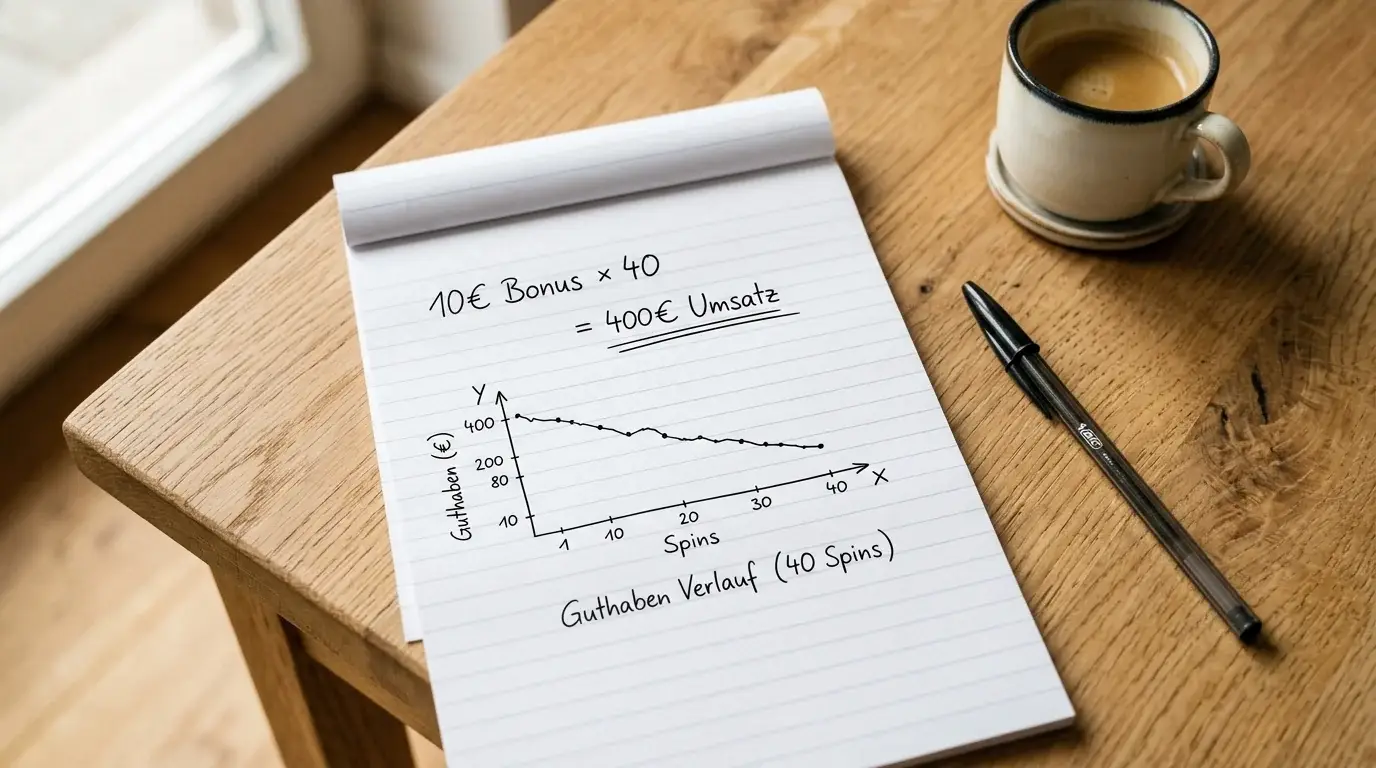 10€ Bonus × 40
= 400€ Umsatz
Y
400
200
80
10
Guthaben (€)
1 10 20 30 40 X
Spins
Guthaben Verlauf (40 Spins)
BIC